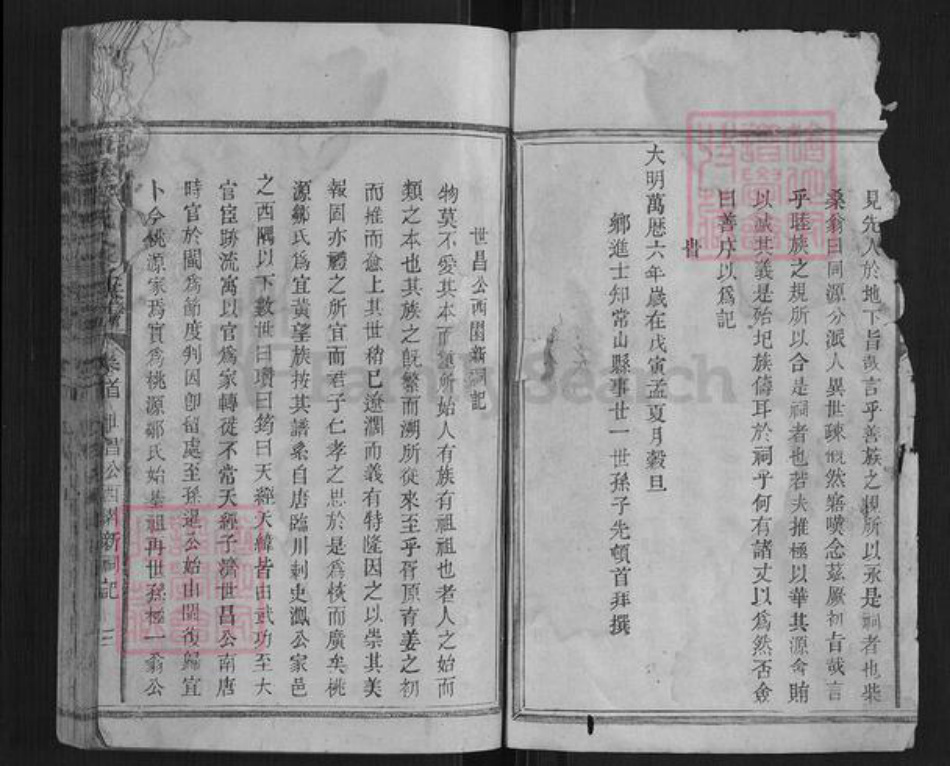 見先人於地下旨哉言乎善族之規所以永是祠者也柴
桑翁曰同源分派人異世疎慨然寤嘆念茲厥初旨哉言
乎睦族之規所以合是祠者也若夫推極以華其源侖賄
以誠其義是殆圯族儔耳於祠乎何有諸丈以爲然否僉
曰善庁以爲記
旹
大明萬曆六年歲在戊寅孟夏月穀旦
鄉進士知常山縣事廿一世孫子先頓首拜撰
世昌公西園新祠記
物莫不愛其本而 所始人有族有祖祖也者人之始而
類之本也其族之旣繁而溯所從來至乎胥原育姜之初
而推而愈上其世稍已遼濶而義有特隆因之以崇其美
報固亦禮之所宜而君子仁孝之思於是爲核而廣矣桃
源鄒氏爲宜黃望族按其譜系自唐臨川刺史鳳公家邑
之西隅以下數世曰瓚曰筠曰天經天緯皆由武功至大
官宦跡流寓以官爲家轉徙不常天經子濟世昌公南唐
時官於閩爲節度判因卽留處至孫暹公始由閩復歸宜
卜今桃源家焉實爲桃源鄒氏始基祖再世孫極 翁公
卷首 世昌公西園新祠記 三
FamilySearch